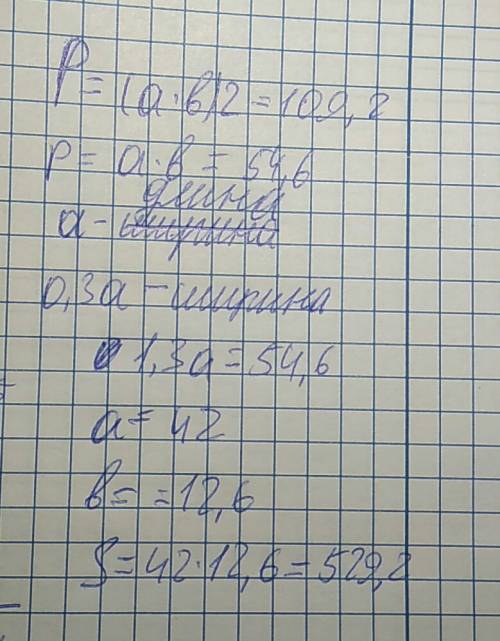 P=(a·b)2=109,2
p=a·b=54,6
длина
a-ширина
0,3a-ширина
1,3a=54,6
a=42
b= =12,6
S=42·12,6=529,2